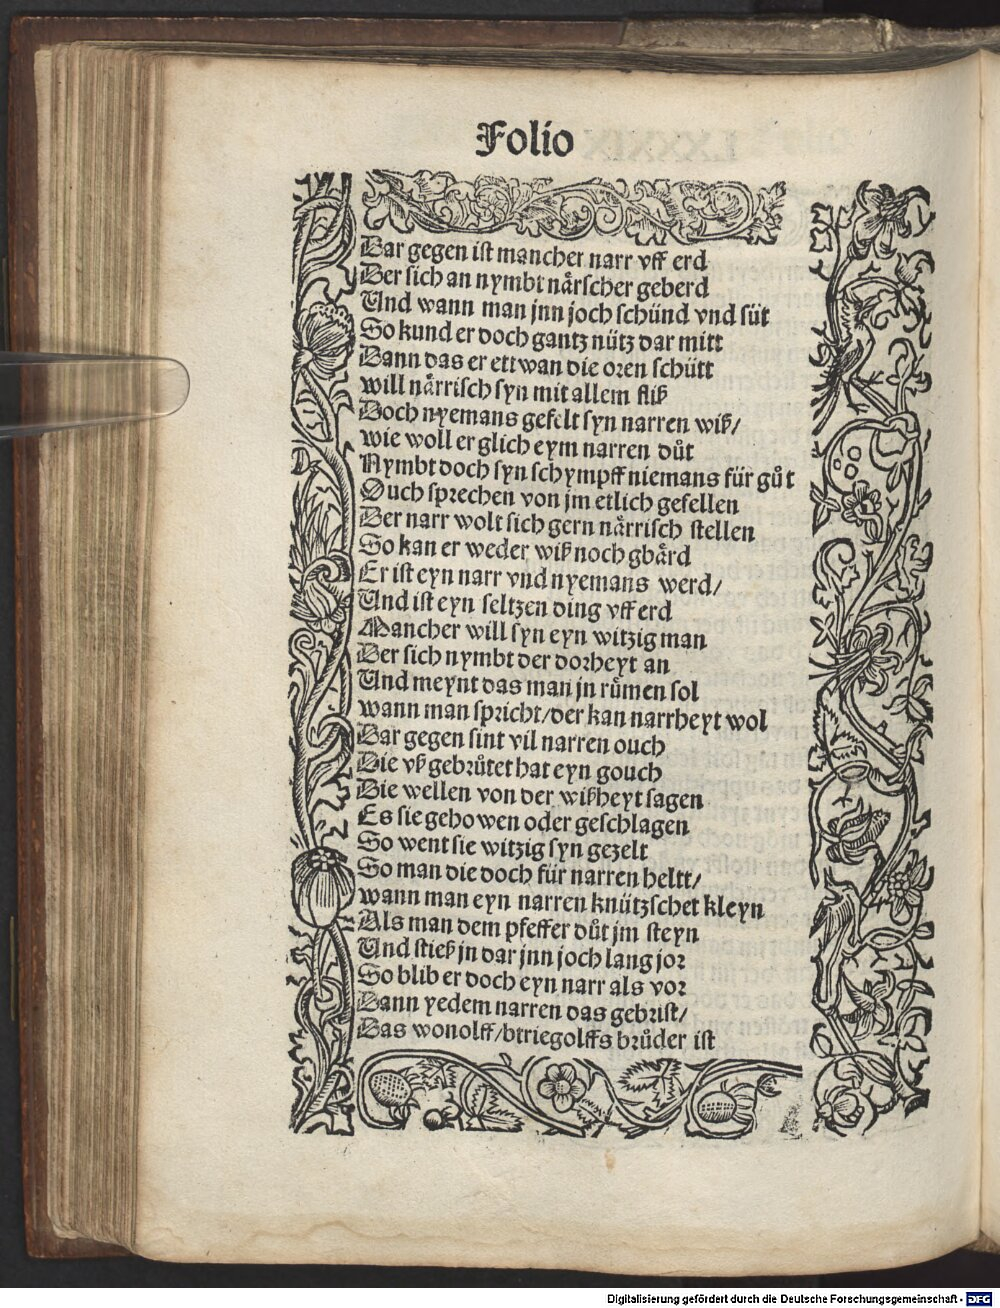 Folio
Dar gegen ist mancher narr vff erd
Der sich an nymbt nårscher geberd
Vnd wann man jnn joch schünd vnd süt
So kund er doch gantz nütz dar mitt
Dann das er ettwan die oren schütt
will nårrisch syn mit allem fliß
Doch nyemans gefelt syn narren wiß/
wie woll er glich eym narren důt
Nymbt doch syn schympff niemans für gůt
Ouch sprechen von jm etlich gesellen
Der narr wolt sich gern nårrisch stellen
So kan er weder wiß noch gbård
Er ist eyn narr vnd nyemans werd/
Vnd ist eyn seltzen ding vff erd
Mancher will syn eyn witzig man
Der sich nymbt der dorheyt an
Vnd meynt das man jn růmen sol
wann man spricht/der kan narrheyt wol
Dar gegen sint vil narren ouch
Die vß gebrůtet hat eyn gouch
Die wellen von der wißheyt sagen
Es sie gehowen oder geschlagen
So went sie witzig syn gezelt
So man die doch für narren heltt/
wann man eyn narren knützschet kleyn
Als man dem pfeffer důt jm steyn
Vnd stieß jn dar jnn joch lang jor
So blib er doch eyn narr als vor
Dann yedem narren das gebrist/
Das wonolff/btriegolffs brůder ist
Digitalisierung gefördert durch die Deutsche Forschungsgemeinschaft - DFG